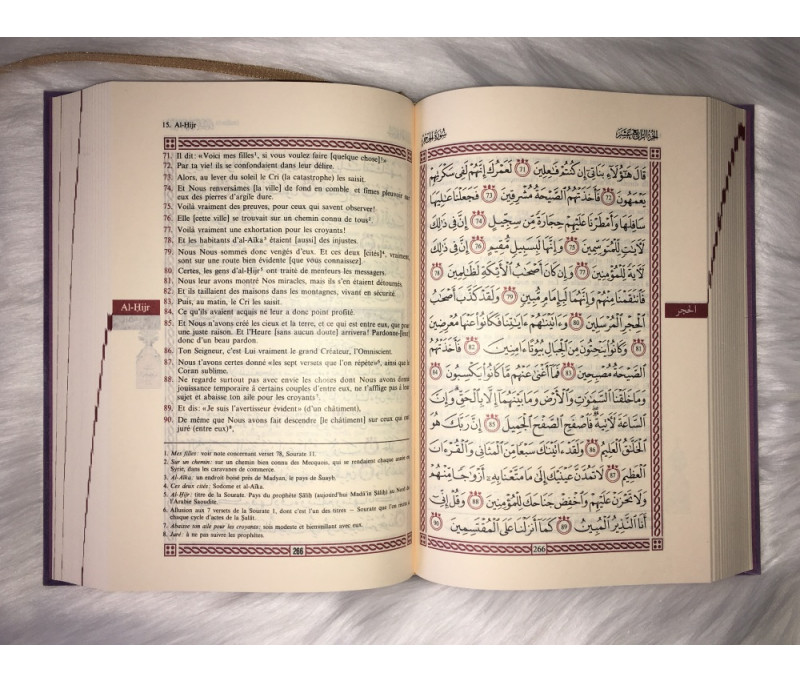 15. Al-Hijr
71. Il dit: «Voici mes filles¹, si vous voulez faire [quelque chose]!»
72. Par ta vie! ils se confondaient dans leur délire.
73. Alors, au lever du soleil le Cri (la catastrophe) les saisit.
74. Et Nous renversâmes [la ville] de fond en comble et fîmes pleuvoir sur
eux des pierres d'argile dure.
75. Voilà vraiment des preuves, pour ceux qui savent observer!
76. Elle [cette ville] se trouvait sur un chemin connu de tous².
77. Voilà vraiment une exhortation pour les croyants!
78. Et les habitants d'al-Aïka³ étaient [aussi] des injustes.
79. Nous Nous sommes donc vengés d'eux. Et ces deux [cités]⁴, vraiment,
sont sur une route bien évidente [que vous connaissez].
80. Certes, les gens d'al-Hijr⁵ ont traité de menteurs les messagers.
81. Nous leur avons montré Nos miracles, mais ils s'en étaient détournés.
82. Et ils taillaient des maisons dans les montagnes, vivant en sécurité.
83. Puis, au matin, le Cri les saisit.
84. Ce qu'ils avaient acquis ne leur a donc point profité.
85. Et Nous n'avons créé les cieux et la terre, et ce qui est entre eux, que pour
une juste raison. Et l'Heure [sans aucun doute] arrivera! Pardonne-[leur]
donc d'un beau pardon.
86. Ton Seigneur, c'est Lui vraiment le grand Créateur, l'Omniscient.
87. Nous t'avons certes donné «les sept versets que l'on répète»⁶, ainsi que le
Coran sublime.
88. Ne regarde surtout pas avec envie les choses dont Nous avons donné
jouissance temporaire à certains couples d'entre eux, ne t'afflige pas à leur
sujet et abaisse ton aile pour les croyants⁷.
89. Et dis: «Je suis l'avertisseur évident» (d'un châtiment),
90. De même que Nous avons fait descendre [le châtiment] sur ceux qui ont
juré (entre eux)⁸,
1. Mes filles: voir note concernant verset 78, Sourate 11.
2. Sur un chemin: sur un chemin bien connu des Mecquois, qui se rendaient chaque année en
Syrie, dans les caravanes de commerce.
3. Al-Aïka: un endroit boisé près de Madyan, le pays de Šuayb.
4. Ces deux cités: Sodome et al-Aïka.
5. Al-Hijr: titre de la Sourate. Pays du prophète Ṣāliḥ (aujourd'hui Madā'in Ṣāliḥ) au Nord de
l'Arabie Saoudite.
6. Allusion aux 7 versets de la Sourate 1, dont c'est l'un des titres – Sourate que l'on récite à
chaque cycle d'actes de la Ṣalāt.
7. Abaisse ton aile pour les croyants: sois modeste et bienveillant avec eux.
8. Juré: à ne pas suivre les prophètes.
266
Al-Hijr
الجزء الرابع عشر
سورة الحجر
قَالَ هَٰؤُلَاءِ بَنَاتِي إِن كُنتُمْ فَاعِلِينَ ٧١ لَعَمْرُكَ إِنَّهُمْ لَفِي سَكْرَتِهِمْ
يَعْمَهُونَ ٧٢ فَأَخَذَتْهُمُ الصَّيْحَةُ مُشْرِقِينَ ٧٣ فَجَعَلْنَا عَالِيَهَا
سَافِلَهَا وَأَمْطَرْنَا عَلَيْهِمْ حِجَارَةً مِّن سِجِّيلٍ ٧٤ إِنَّ فِي ذَٰلِكَ
لَآيَاتٍ لِّلْمُتَوَسِّمِينَ ٧٥ وَإِنَّهَا لَبِسَبِيلٍ مُّقِيمٍ ٧٦ إِنَّ فِي ذَٰلِكَ
لَآيَةً لِّلْمُؤْمِنِينَ ٧٧ وَإِن كَانَ أَصْحَابُ الْأَيْكَةِ لَظَالِمِينَ ٧٨
فَانتَقَمْنَا مِنْهُمْ وَإِنَّهُمَا لَبِإِمَامٍ مُّبِينٍ ٧٩ وَلَقَدْ كَذَّبَ أَصْحَابُ
الْحِجْرِ الْمُرْسَلِينَ ٨٠ وَآتَيْنَاهُمْ آيَاتِنَا فَكَانُوا عَنْهَا مُعْرِضِينَ
٨١ وَكَانُوا يَنْحِتُونَ مِنَ الْجِبَالِ بُيُوتًا آمِنِينَ ٨٢ فَأَخَذَتْهُمُ
الصَّيْحَةُ مُصْبِحِينَ ٨٣ فَمَا أَغْنَىٰ عَنْهُم مَّا كَانُوا يَكْسِبُونَ ٨٤
وَمَا خَلَقْنَا السَّمَاوَاتِ وَالْأَرْضَ وَمَا بَيْنَهُمَا إِلَّا بِالْحَقِّ وَإِنَّ
السَّاعَةَ لَآتِيَةٌ فَاصْفَحِ الصَّفْحَ الْجَمِيلَ ٨٥ إِنَّ رَبَّكَ هُوَ
الْخَلَّاقُ الْعَلِيمُ ٨٦ وَلَقَدْ آتَيْنَاكَ سَبْعًا مِّنَ الْمَثَانِي وَالْقُرْآنَ
الْعَظِيمَ ٨٧ لَا تَمُدَّنَّ عَيْنَيْكَ إِلَىٰ مَا مَتَّعْنَا بِهِ أَزْوَاجًا مِّنْهُمْ
وَلَا تَحْزَنْ عَلَيْهِمْ وَاخْفِضْ جَنَاحَكَ لِلْمُؤْمِنِينَ ٨٨ وَقُلْ إِنِّي
أَنَا النَّذِيرُ الْمُبِينُ ٨٩ كَمَا أَنزَلْنَا عَلَى الْمُقْتَسِمِينَ ٩٠
266
الحجر